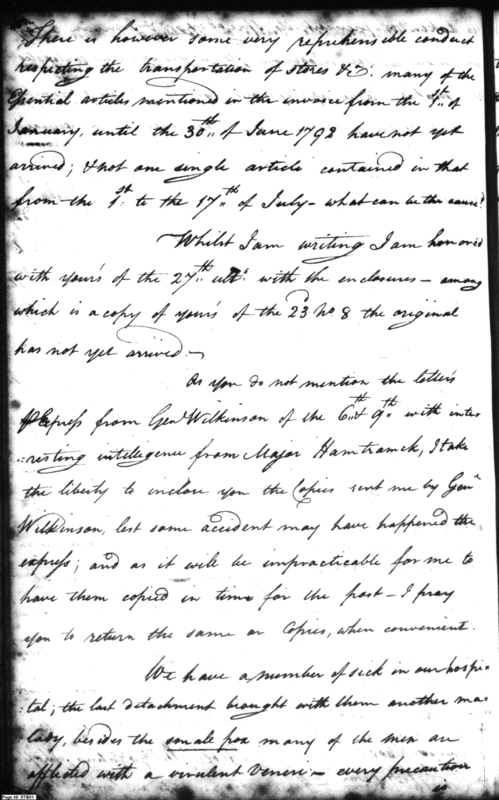 There is however some very reprehensible conduct
respecting the transportation of stores &c. many of the
Essential articles mentioned in the invoice from the 1st of
January, until the 30th of June 1792 have not yet
arrived; & not one single article contained in that
from the 1st to the 17th of July - what can be the cause?
Whilst I am writing I am honored
with your's of the 27th ulto. with the enclosures - among
which is a copy of your's of the 23d No 8 the original
has not yet arrived -
As you do not mention the letters
Express from Genl Wilkinson of the 6th & 9th with inte-
:resting intellegence from Major Hamtramck, I take
the liberty to inclose you the Copies sent me by Genl
Wilkinson, lest some accident may have happened the
express; and as it will be impracticable for me to
have them copied in time for the post - I pray
you to return the same or Copies, when convenient.
We have a number of sick in our hospi-
:tal; the last detachment brought with them another ma-
lady, besides the smale pox many of the men are
afflicted with a virulent veneri - every precaution
is
Page 48 ST801